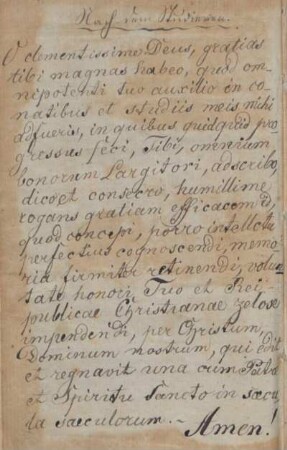 Nach dem Studieren.
O clementissime Deus, gratias
tibi magnas habeo, quod om-
nipotenti tuo auxilio in co-
natibus et studiis meis mihi
adfueris, in quibus quidquid pro
gressus feci, Tibi, omnium
bonorum Largitori, adscribo,
dico et consecro, humillime
rogans gratiam efficacem id,
quod concepi, porro intellectu
perfectius cognoscendi, memo-
ria firmiter retinendi, volun
tate honori Tuo et Rei
publicae Christianae zelose
impendendi, per Christum,
Dominum nostrum, qui erit
et regnavit una cum Patre
et Spiritu Sancto in saecu
la saeculorum.-
Amen!